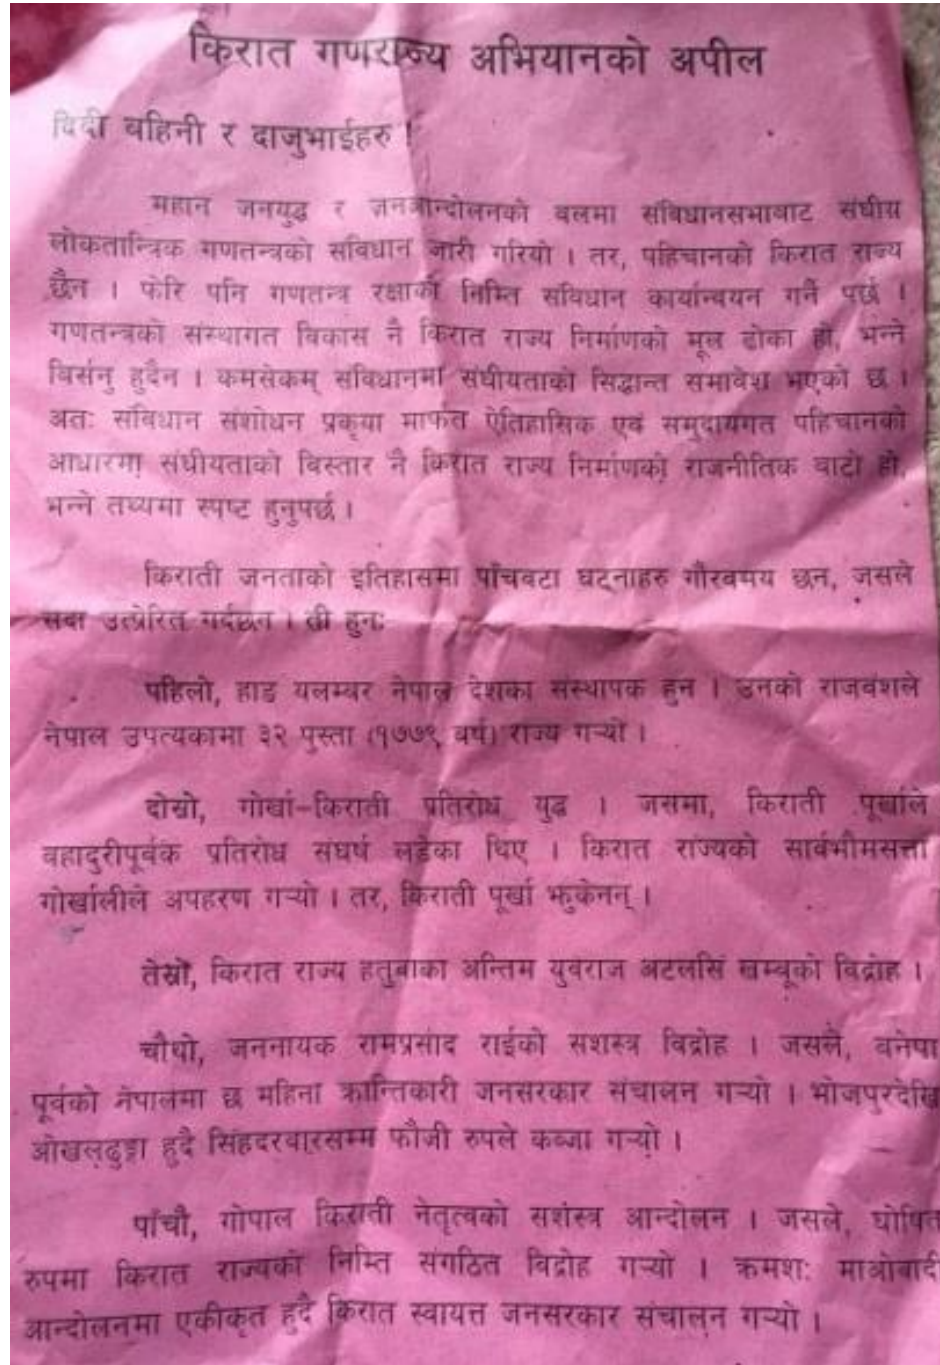 किरात गणराज्य अभियानको अपील
दिदी बहिनी र दाजुभाईहरु !
महान जनयुद्ध र जनआन्दोलनको बलमा संविधानसभाबाट संघीय
लोकतान्त्रिक गणतन्त्रको संविधान जारी गरियो । तर, पहिचानको किरात राज्य
छैन । फेरि पनि गणतन्त्र रक्षाको निम्ति संविधान कार्यान्वयन गर्नै पर्छ ।
गणतन्त्रको संस्थागत विकास नै किरात राज्य निर्माणको मूल ढोका हो, भन्ने
विर्सनु हुदैन । कमसेकम् संविधानमा संघीयताको सिद्धान्त समावेश भएको छ ।
अतः संविधान संशोधन प्रकृया मार्फत ऐतिहासिक एवं समुदायगत पहिचानको
आधारमा संघीयताको विस्तार नै किरात राज्य निर्माणको राजनीतिक बाटो हो,
भन्ने तथ्यमा स्पष्ट हुनुपर्छ ।
किराती जनताको इतिहासमा पाँचवटा घट्नाहरु गौरवमय छन, जसले
सदा उत्प्रेरित गर्दछन । ती हुनः
पहिलो, हाङ यलम्बर नेपाल देशका संस्थापक हुन । उनको राजवंशले
नेपाल उपत्यकामा ३२ पुस्ता (१७७९ वर्ष) राज्य गर्‍यो ।
दोस्रो, गोर्खा–किराती प्रतिरोध युद्ध । जसमा, किराती पूर्खाले
बहादुरीपूर्वक प्रतिरोध संघर्ष लडेका थिए । किरात राज्यको सार्वभौमसत्ता
गोर्खालीले अपहरण गर्‍यो । तर, किराती पूर्खा झुकेनन् ।
तेस्रो, किरात राज्य हतुवाका अन्तिम युवराज अटलसिं खम्बूको विद्रोह ।
चौथो, जननायक रामप्रसाद राईको सशस्त्र विद्रोह । जसले, बनेपा
पूर्वको नेपालमा छ महिना क्रान्तिकारी जनसरकार संचालन गर्‍यो । भोजपुरदेखि
ओखलढुङ्गा हुदै सिंहदरवारसम्म फौजी रुपले कब्जा गर्‍यो ।
पाँचौ, गोपाल किराती नेतृत्वको सशंस्त्र आन्दोलन । जसले, घोषित
रुपमा किरात राज्यको निम्ति संगठित विद्रोह गर्‍यो । क्रमशः माओवादी
आन्दोलनमा एकीकृत हुदै किरात स्वायत्त जनसरकार संचालन गर्‍यो ।